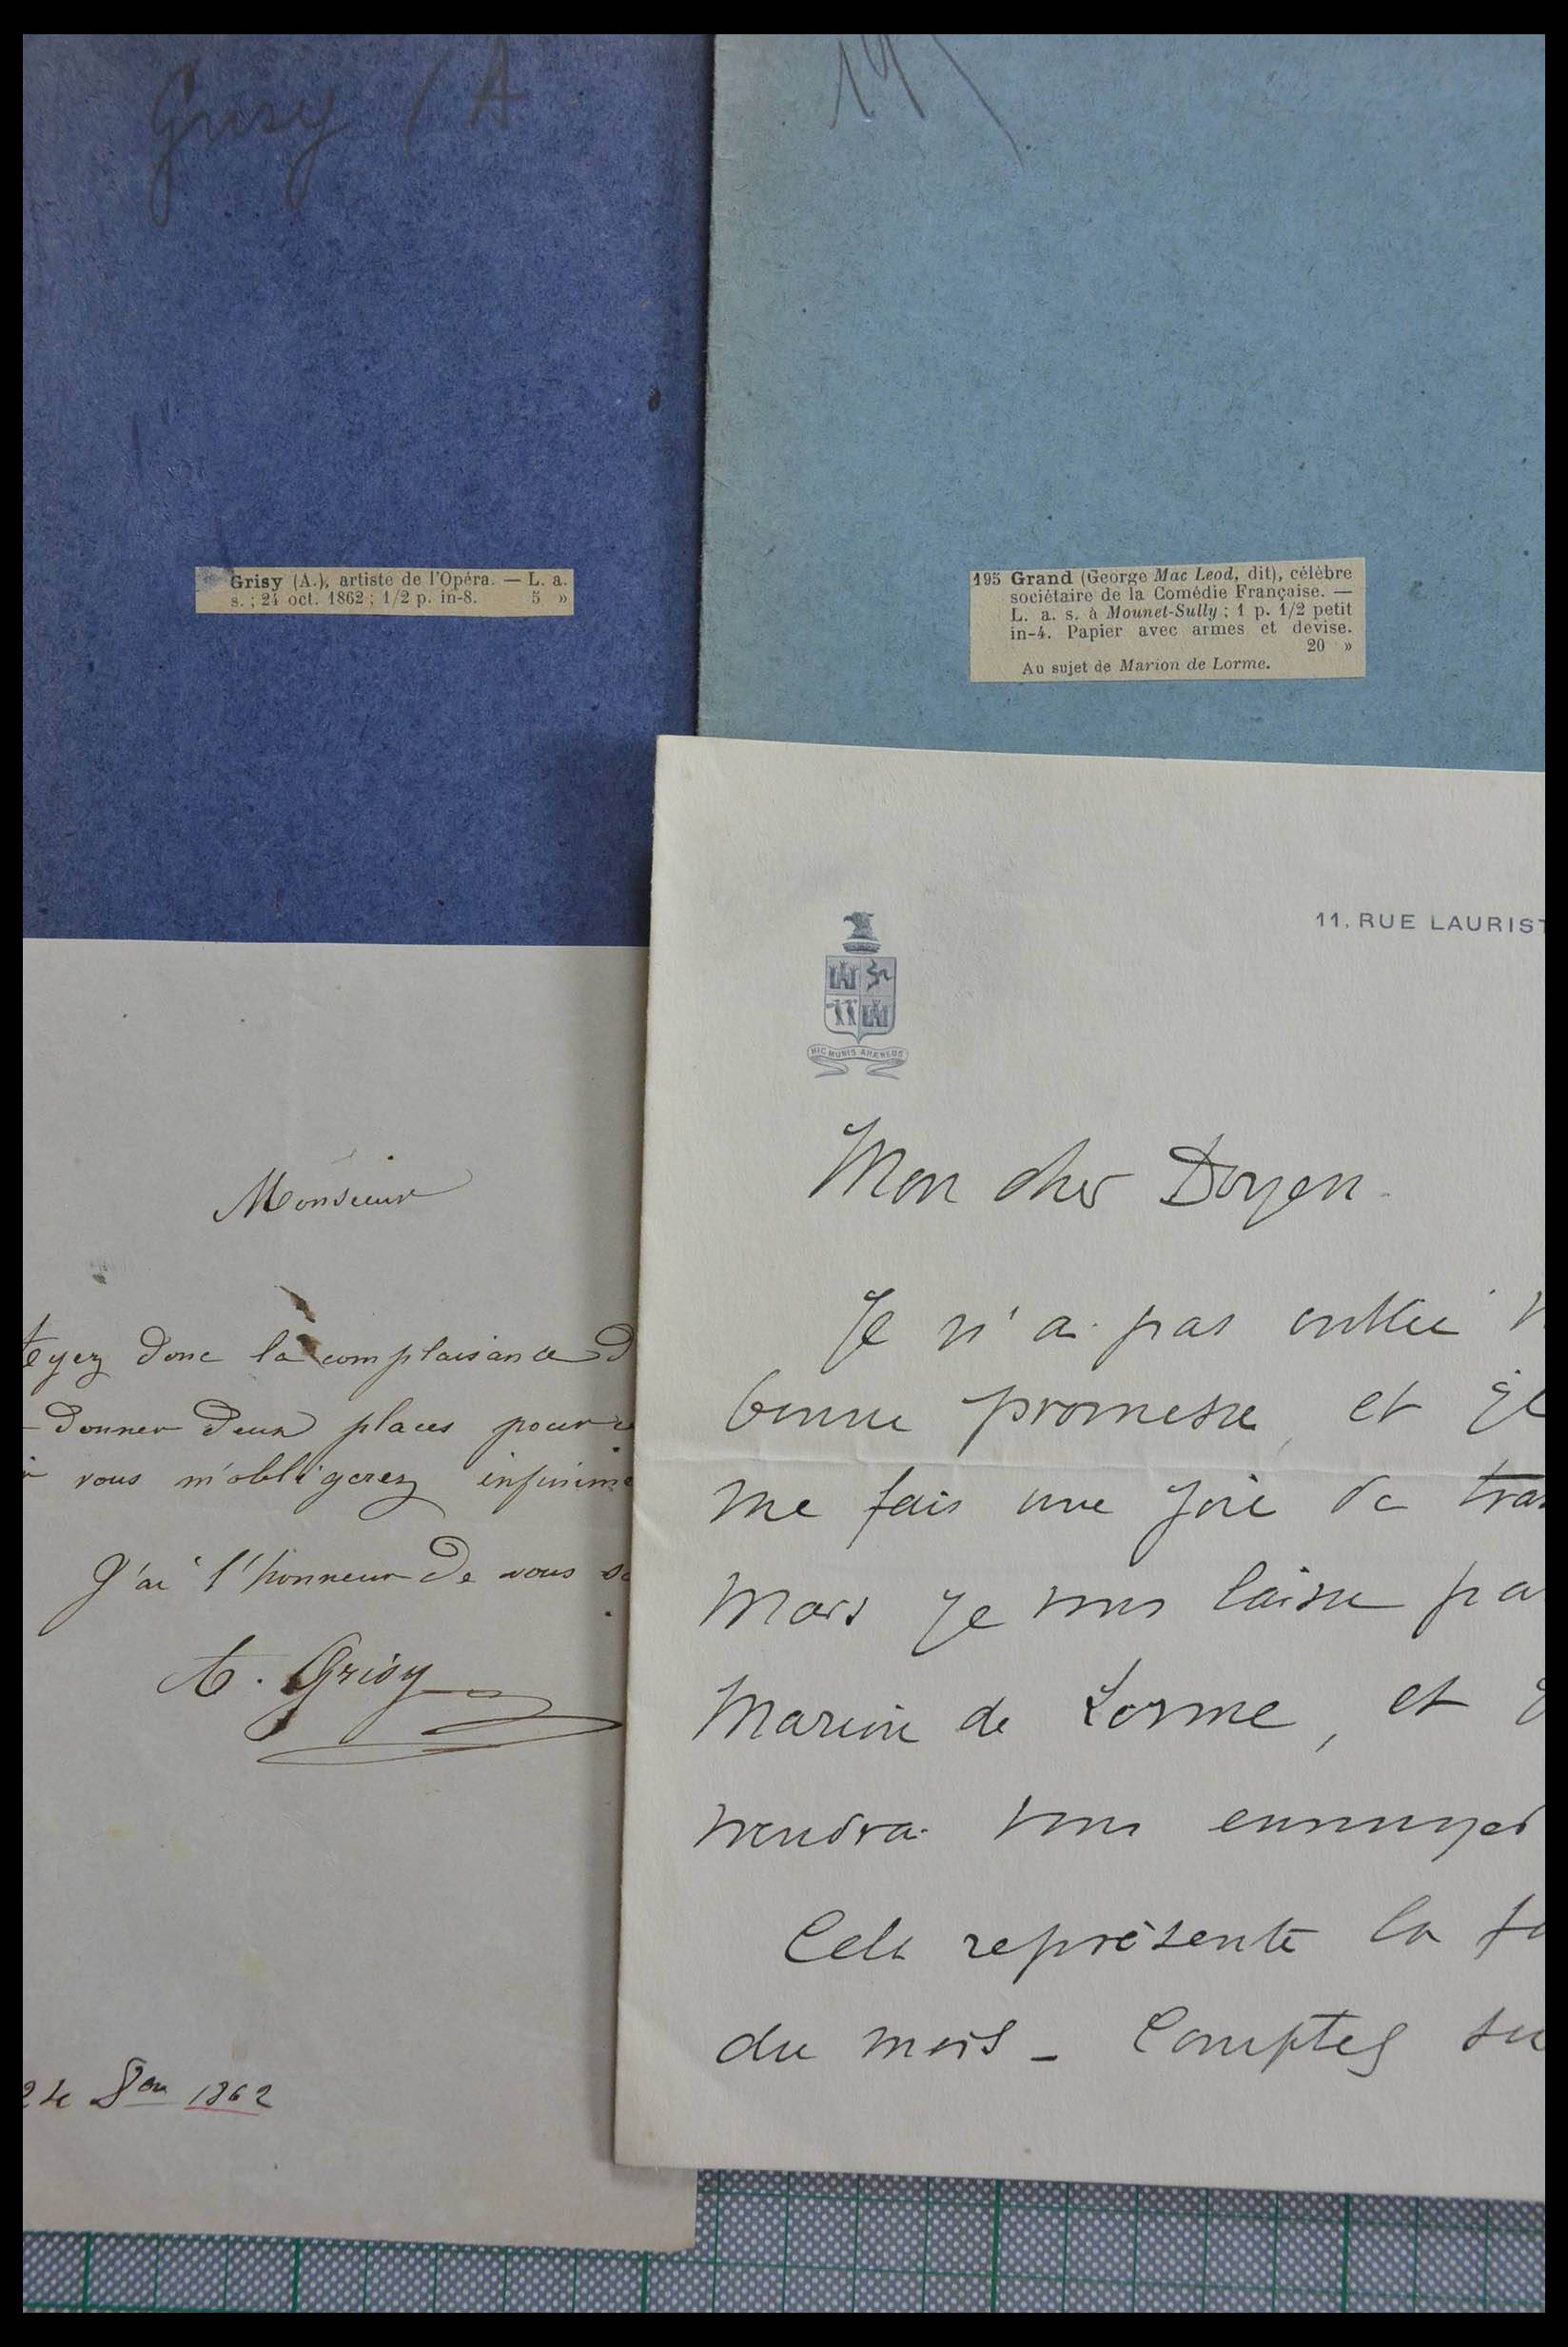 Grisy / A
195
Grisy (A.), artiste de l'Opéra. — L. a.
s. ; 24 oct. 1862 ; 1/2 p. in-8. 5 »
195 Grand (George Mac Leod, dit), célèbre
sociétaire de la Comédie Française. —
L. a. s. à Mounet-Sully ; 1 p. 1/2 petit
in-4. Papier avec armes et devise.
20 »
Au sujet de Marion de Lorme.
Monsieur
donc la complaisance
donner deux places pour
vous m'obligerez infinime
J'ai l'honneur de vous
A. Grisy
1862
11, RUE LAURIST
HIC MURUS AHENEUS
Mon cher Doyen.
Je n'ai pas oublié
bonne promesse, et je
me fais une joie de
Mais je vous laisse
Marion de Lorme, et
viendra vous ennuyer
Cela représente la
du mois _ Comptez